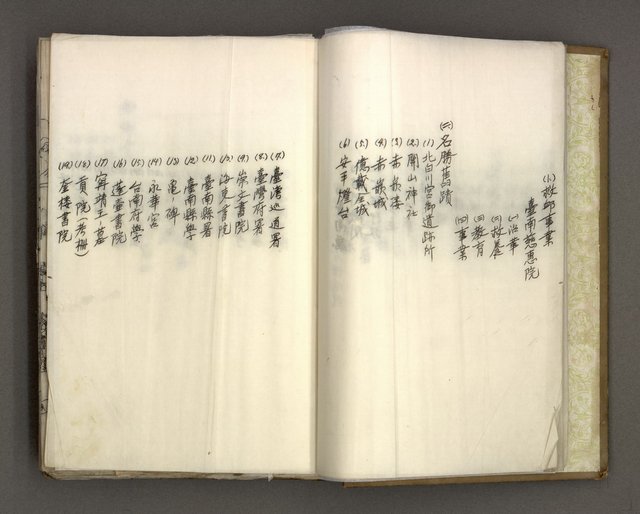 (小)救卹事業
臺南慈惠院
(一)沿革
(二)救養
(三)教育
(四)事業
(六)名勝舊蹟
(1)北白川宮御遺跡所
(2)開山神社
(3)赤嵌樓
(4)赤嵌城
(5)億載金城
(6)安平燈台
(7)臺灣巡道署
(8)臺灣府署
(9)崇文書院
(10)海東書院
(11)臺南縣署
(12)臺南縣學
(13)龜碑
(14)永華宮
(15)台南府學
(16)蓬壺書院
(17)寧靖王墓
(18)貢院(考棚)
(19)奎樓書院